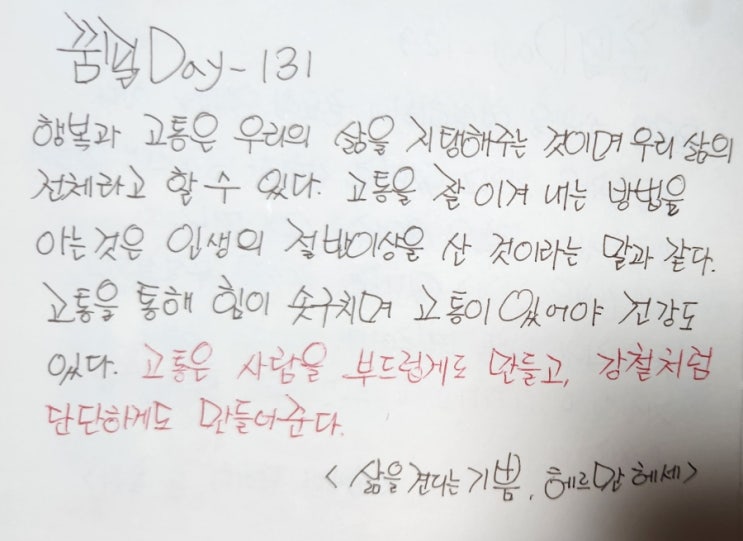 꿈벗 Day-131
행복과 고통은 우리의 삶을 지탱해주는 것이며 우리 삶의
전체라고 할 수 있다. 고통을 잘 이겨 내는 방법을
아는 것은 인생의 절반이상을 산 것이라는 말과 같다.
고통을 통해 힘이 솟구치며 고통이 있어야 건강도
있다. 고통은 사람을 부드럽게도 만들고, 강철처럼
단단하게도 만들어준다.
<삶을 견디는 기쁨, 헤르만 헤세>